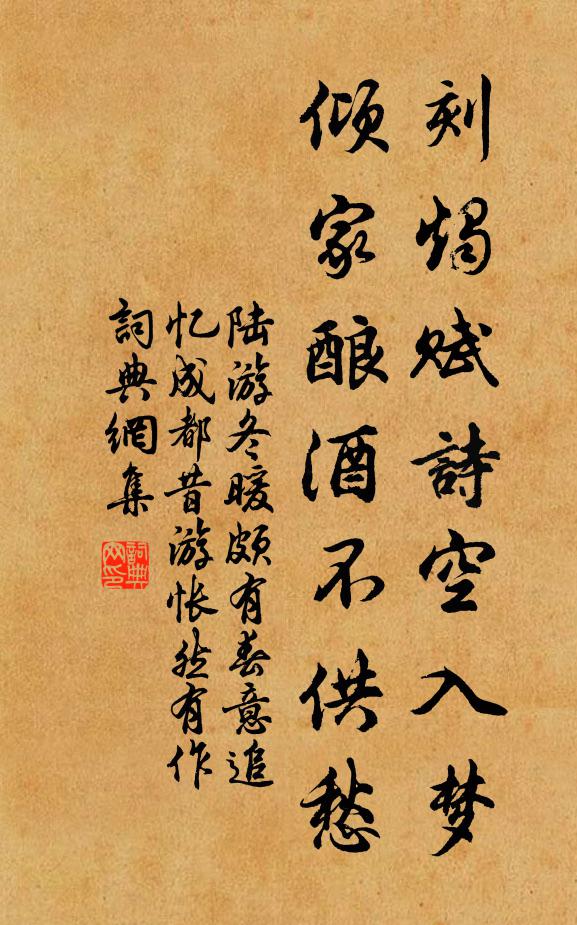 刻烛赋詩空入梦
倾家酿酒不供愁
陆游冬暖颇有春意追
忆成都昔游怅然有作
詞典網集
詞典网印